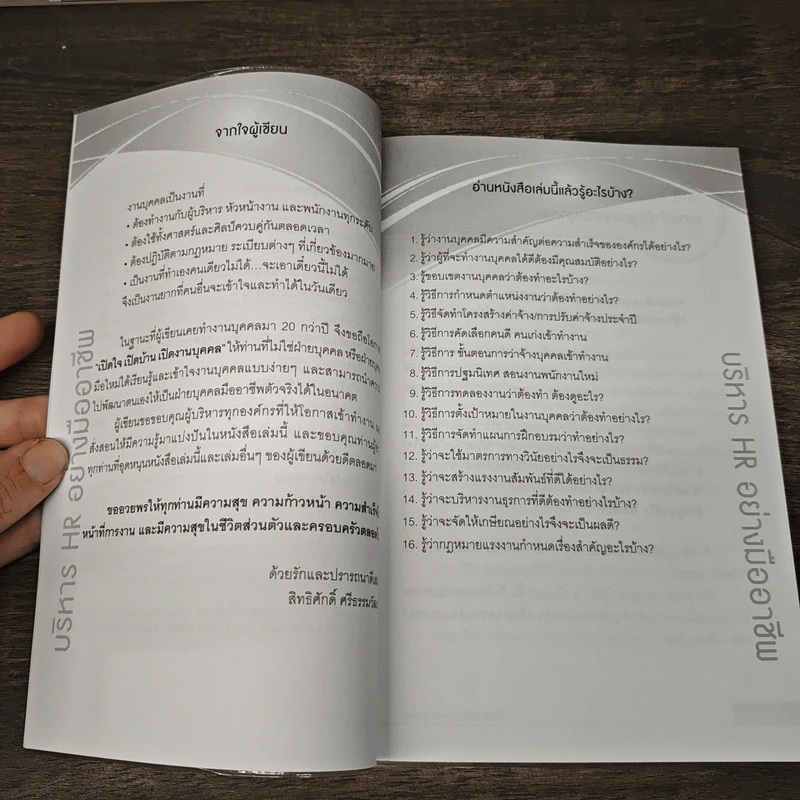 จากใจผู้เขียน
งานบุคคลเป็นงานที่
• ต้องทำงานกับผู้บริหาร หัวหน้างาน และพนักงานทุกระดับ
• ต้องใช้ทั้งศาสตร์และศิลป์ควบคู่กันตลอดเวลา
• ต้องปฏิบัติตามกฎหมาย ระเบียบต่างๆ ที่เกี่ยวข้องมากมาย
• เป็นงานที่ทำเองคนเดียวไม่ได้...จะเอาเดี๋ยวนี้ไม่ได้
จึงเป็นงานยากที่คนอื่นจะเข้าใจ และทำได้ในวันเดียว
ในฐานะที่ผู้เขียนเคยทำงานบุคคลมา 20 กว่าปี จึงขอถือโอกาส
"เปิดใจ เปิดบ้าน เปิดงานบุคคล" ให้ท่านที่ไม่ใช่ฝ่ายบุคคล หรือฝ่ายบุคคล
มือใหม่ได้เรียนรู้และเข้าใจงานบุคคลแบบง่ายๆ และสามารถนำความ
ไปพัฒนาตนเองให้เป็นฝ่ายบุคคลมืออาชีพตัวจริงได้ในอนาคต
ผู้เขียนขอขอบคุณผู้บริหารทุกองค์กรที่ให้โอกาสเข้าทำงาน และ
สั่งสอนให้มีความรู้มาแบ่งปันในหนังสือเล่มนี้ และขอบคุณท่านผู้
ทุกท่านที่อุดหนุนหนังสือเล่มนี้และเล่มอื่นๆ ของผู้เขียนด้วยดีตลอดมา
ขออวยพรให้ทุกท่านมีความสุข ความก้าวหน้า ความสำเร็จ
หน้าที่การงาน และมีความสุขในชีวิตส่วนตัวและครอบครัวตลอด
ด้วยรักและปรารถนาดี
สิทธิศักดิ์ ศรีธรรม
บริหาร HR อย่างมืออาชีพ
อ่านหนังสือเล่มนี้แล้วรู้อะไรบ้าง?
1. รู้ว่างานบุคคลมีความสำคัญต่อความสำเร็จขององค์กรได้อย่างไร?
2. รู้ว่าผู้ที่จะทำงานบุคคลได้ดีต้องมีคุณสมบัติอย่างไร?
3. รู้ขอบเขตงานบุคคลว่าต้องทำอะไรบ้าง?
4. รู้วิธีการกำหนดตำแหน่งงานว่าต้องทำอย่างไร?
5. รู้วิธีจัดทำโครงสร้างค่าจ้าง/การปรับค่าจ้างประจำปี
6. รู้วิธีการคัดเลือกคนดี คนเก่งเข้าทำงาน
7. รู้วิธีการ ขั้นตอนการว่าจ้างบุคคลเข้าทำงาน
8. รู้วิธีการปฐมนิเทศ สอนงานพนักงานใหม่
9. รู้วิธีการทดลองงานว่าต้องทำ ต้องดูอะไร?
10. รู้วิธีการตั้งเป้าหมายในงานบุคคลว่าต้องทำอย่างไร?
11. รู้วิธีการจัดทำแผนการฝึกอบรมว่าทำอย่างไร?
12. รู้ว่าจะใช้มาตรการทางวินัยอย่างไรจึงจะเป็นธรรม?
13. รู้ว่าจะสร้างแรงงานสัมพันธ์ที่ดีได้อย่างไร?
14. รู้ว่าจะบริหารงานธุรการที่ดีต้องทำอย่างไรบ้าง?
15. รู้ว่าจะจัดให้เกษียณอย่างไรจึงจะเป็นผลดี?
16. รู้ว่ากฎหมายแรงงานกำหนดเรื่องสำคัญอะไรบ้าง?
บริหาร HR อย่างมืออาชีพ